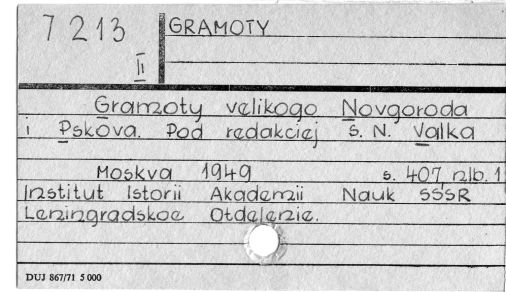 7213 GRAMOTY
II
Gramoty velikogo Novgoroda
i Pskova. Pod redakciej S. N. Valka
Moskva 1949 s. 407, nlb. 1
Institut Istorii Akademii Nauk SSSR
Leningradskoe Otdelenie.
DUJ 867/71 5 000